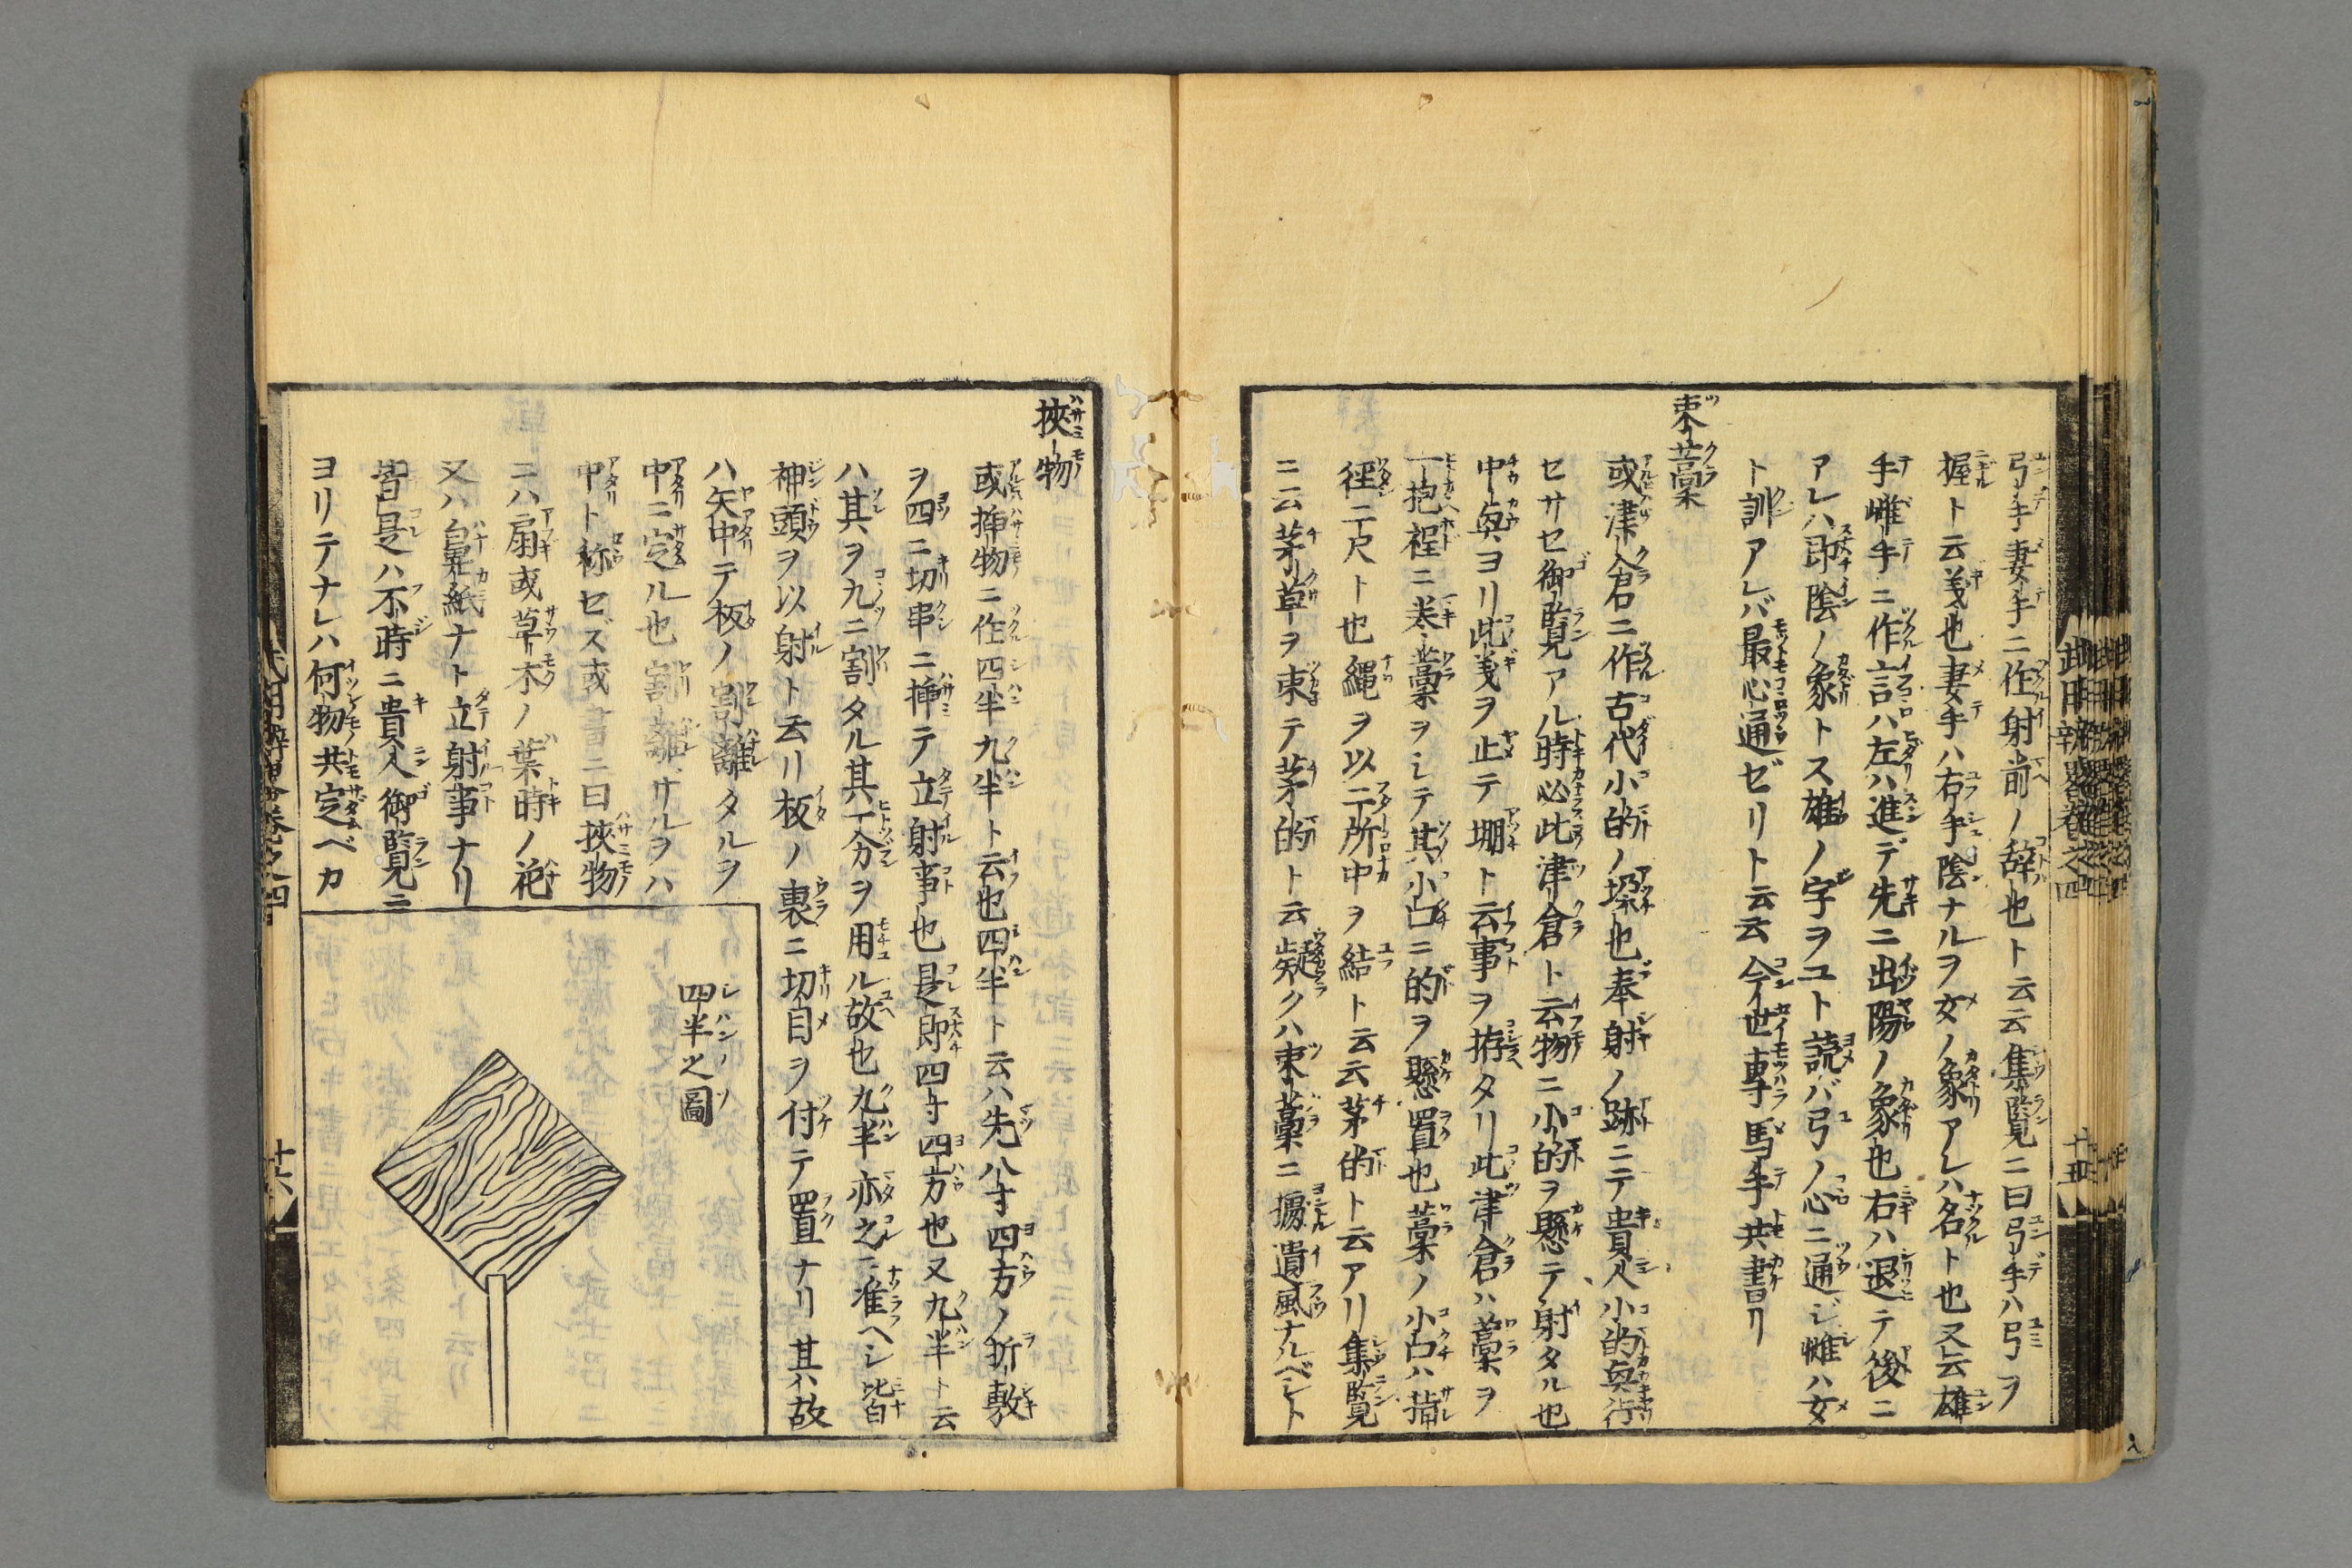 弓手妻手ニ作射前ノ辞也ト云云集覧ニ曰弓手ハ弓ヲ
握ト云義也妻手ハ右手陰ナルヲ女ノ象アレハ名ト也又云雄
手雌手ニ作言ハ左ハ進デ先ニ出陽ノ象也右ハ退テ後ニ
アレハ即陰ノ象トス雄ノ字ヲユト読バ弓ノ心ニ通ジ雌ハ女
ト訓アレバ最心通ゼリト云云今世専馬手共書リ
束藁
或津倉ニ作古代小的ノ垜也奉射ノ跡ニテ貴人小的興行
セサセ御覧アル時必此津倉ト云物ニ小的ヲ懸テ射タル也
中奥ヨリ此義ヲ止テ堋ト云事ヲ拵タリ此津倉ハ藁ヲ
一抱程ニ巻藁ヲシテ其小口ニ的ヲ懸置也藁ノ小口ハ揃
径二尺ト也縄ヲ以二所中ヲ結ト云云茅的ト云アリ集覧
ニ云茅草ヲ束テ茅的ト云疑クハ束藁ニ據遺風ナルベシト
武用辨畧巻之四
十五
挾物
或挿物ニ作四半九半ト云也四半ト云ハ先八寸四方ノ折敷
ヲ四ニ切串ニ挿テ立射事也是即四寸四方也又九半ト云
ハ其ヲ九ニ割タル其一分ヲ用ル故也九半亦之ニ准ヘシ皆
神頭ヲ以射ト云リ板ノ裏ニ切目ヲ付テ置ナリ其ハ故
ハ矢中テ板ノ割離タルヲ
中ニ定ル也割離サルヲハ
中ト称セズ或書ニ曰挾物
ニハ扇或草木ノ葉時ノ花
又ハ鼻紙ナト立射事ナリ
皆是ハ不時ニ貴人御覧ニ
ヨリテナレハ何物共定ベカ
四半之圖
武用辨畧巻之四
十六